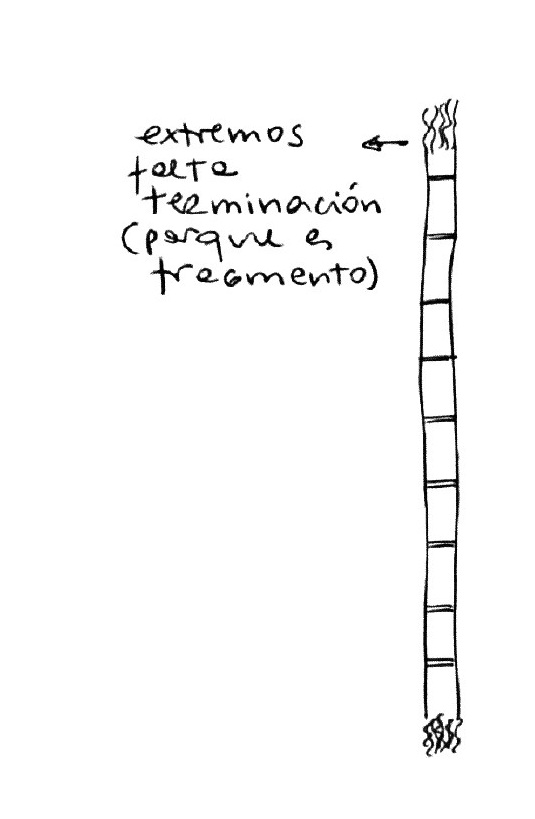 extremos
falta
terminación
(porque es
fragmento)